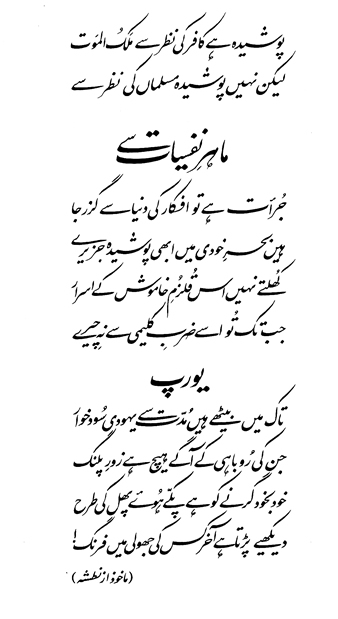 پوشیدہ ہے کافر کی نظر سے ملک الموت
لیکن نہیں پوشیدہ مسلماں کی نظر سے
ماہرِ نفسیات سے
جُرأت ہے تو افکار کی دنیا سے گزر جا
ہیں بحرِ خودی میں ابھی پوشیدہ جزیرے
کھُلتے نہیں اس قلزُمِ خاموش کے اسرار
جب تک تُو اسے ضربِ کلیمی سے نہ چیرے
یورپ
تاک میں بیٹھے ہیں مُدّت سے یہودی سُود خوار
جن کی رُوباہی کے آگے ہیچ ہے زورِ پلنگ
خود بخود گرنے کو ہے پکّے ہُوئے پھل کی طرح
دیکھیے پڑتا ہے آخر کس کی جھولی میں فرنگ!
(ماخوذ از نطشہ)